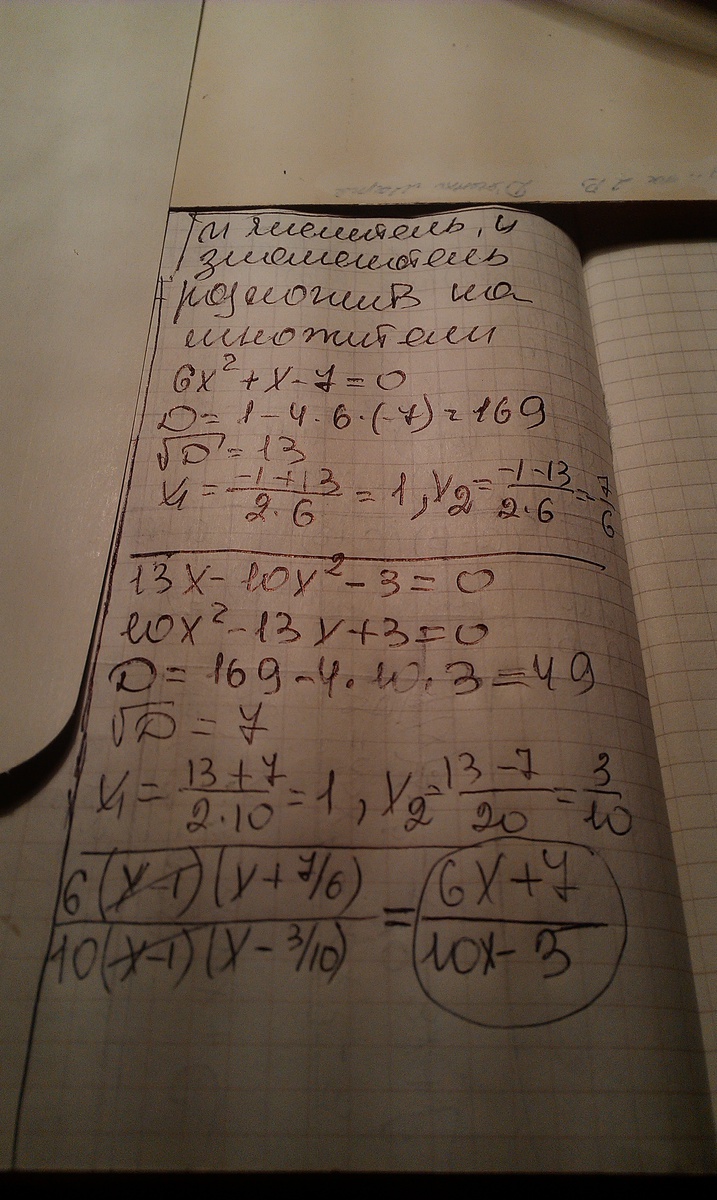 и числитель, и
знаменатель
разложив на
множители
6x² + x - 7 = 0
D = 1 - 4 · 6 · (-7) = 169
√D = 13
x₁ = (-1 + 13)/(2 · 6) = 1, x₂ = (-1 - 13)/(2 · 6) = 7/6
13x - 10x² - 3 = 0
10x² - 13x + 3 = 0
D = 169 - 4 · 10 · 3 = 49
√D = 7
x₁ = (13 + 7)/(2 · 10) = 1, x₂ = (13 - 7)/20 = 3/10
6(x-1)(x + 7/6)/10(x-1)(x - 3/10) = (6x + 7)/(10x - 3)